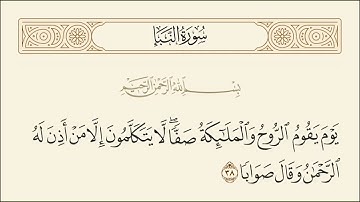 سُورَةُ النَّبَإِ
بِسْمِ اللَّهِ الرَّحْمَٰنِ الرَّحِيمِ
يَوْمَ يَقُومُ ٱلرُّوحُ وَٱلْمَلَٰٓئِكَةُ صَفًّا ۖ لَّا يَتَكَلَّمُونَ إِلَّا مَنْ أَذِنَ لَهُ
ٱلرَّحْمَٰنُ وَقَالَ صَوَابًا ٣٨